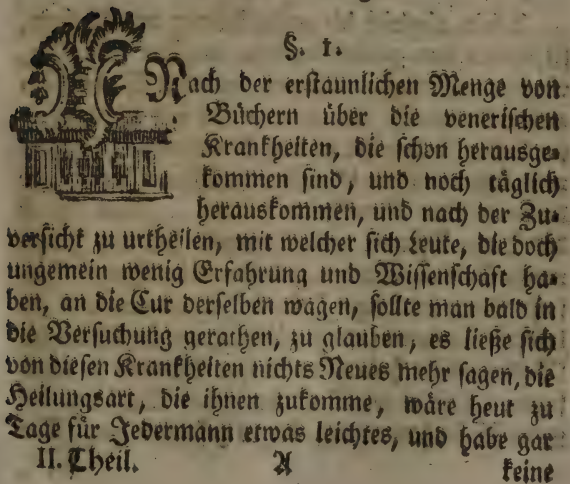 §. 1.
Nach der erstaunlichen Menge von
Büchern über die venerischen
Krankheiten, die schon herausge-
kommen sind, und noch täglich
herauskommen, und nach der Zu-
versicht zu urtheilen, mit welcher sich Leute, die doch
ungemein wenig Erfahrung und Wissenschaft ha-
ben, an die Cur derselben wagen, sollte man bald in
die Versuchung gerathen, zu glauben, es ließe sich
von diesen Krankheiten nichts Neues mehr sagen, die
Heilungsart, die ihnen zukomme, wäre heut zu
Tage für Jedermann etwas leichtes, und habe gar
II. Theil. A keine